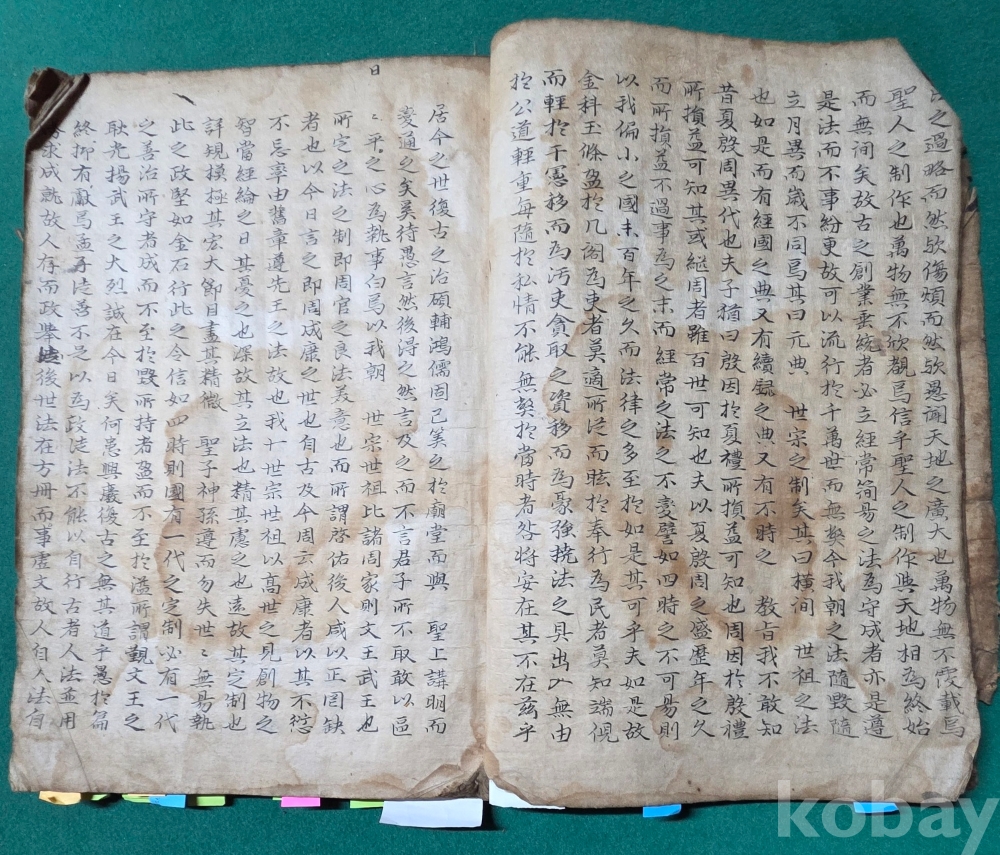 之過略而然歟傷煩而然歟愚謂天地之廣大也萬物無不霞載焉
聖人之制作也萬物無不欣覩焉信乎聖人之制作與天地相為終始
而無间矣故古之創業垂統者必立經常简易之法為守成者亦是遵
是法而不事紛更故可以流行於千萬世而無弊今我朝之法隨毀隨
立月異而歲不同焉其曰元典 世宗之制矣其曰橫间 世祖之法
也如是而有經國之典又有續錄之典又有不時之 教旨我不敢知
昔夏殷周異代也夫子猶曰殷因於夏禮所損益可知也周因於殷禮
所損益可知其或繼周者雖百世可知也夫以夏殷周之盛歷年之久
而所損益不過事為之末而經常之法之不變譬如四時之不可易則
以我偏小之國未百年之久而法律之多至於如是其可乎夫如是故
金科玉條盈於几阁為吏者莫適所从而眩於奉行為民者莫知端倪
而輕於干憲移而為污吏貪取之資移而為豪強撓法之具出入無由
於公道輕重每隨於私情不能無弊於當時者咎將安在其不在兹乎
日
居今之世復古之治碩輔鴻儒固已筭之於廟堂而與 聖上講明而
變通之矣奚待愚言然後淂之然言及之而不言君子所不取敢以區
〻平〻之心為執事白焉以我朝 世宗世祖比諸周家則文王武王也
所定之法之制即周官之良法義意也而所謂啓佑後人咸以正罔缺
者也以今日言之即周成康之世也自古及今周云成康者以其不愆
不忘率由舊章遵先王之法故也我 世宗世祖以高世之見創物之
智當經綸之日其憂之也深故其立法也精其慮之也遠故其定制也
詳規模極其宏大節目盡其精微 聖子神孫遵而勿失世〻無易執
此之政堅如金石行此之令信如四時則國有一代之定制必有一代
之善治所守者成而不至於毀所持者盈而不至於溢所謂覲文王之
耿光揚武王之大烈誠在今日矣何患興衰後古之無其道乎愚於篇
終抑有獻焉孟子徒善不足以為政徒法不能以自行古者人法並用
求成就故人存而政舉後世法在方冊而事虛文故人自人法自
kobay